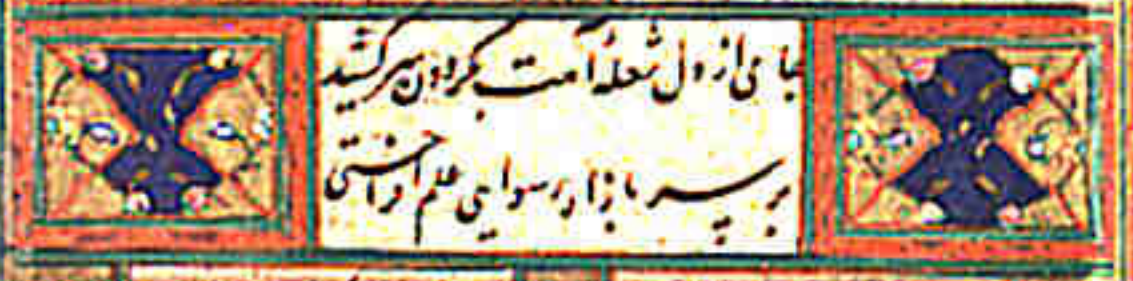 جامی از دل شعلهٔ آهت بگردون سر کشید
بر سر بازار رسوایی علم افراختی